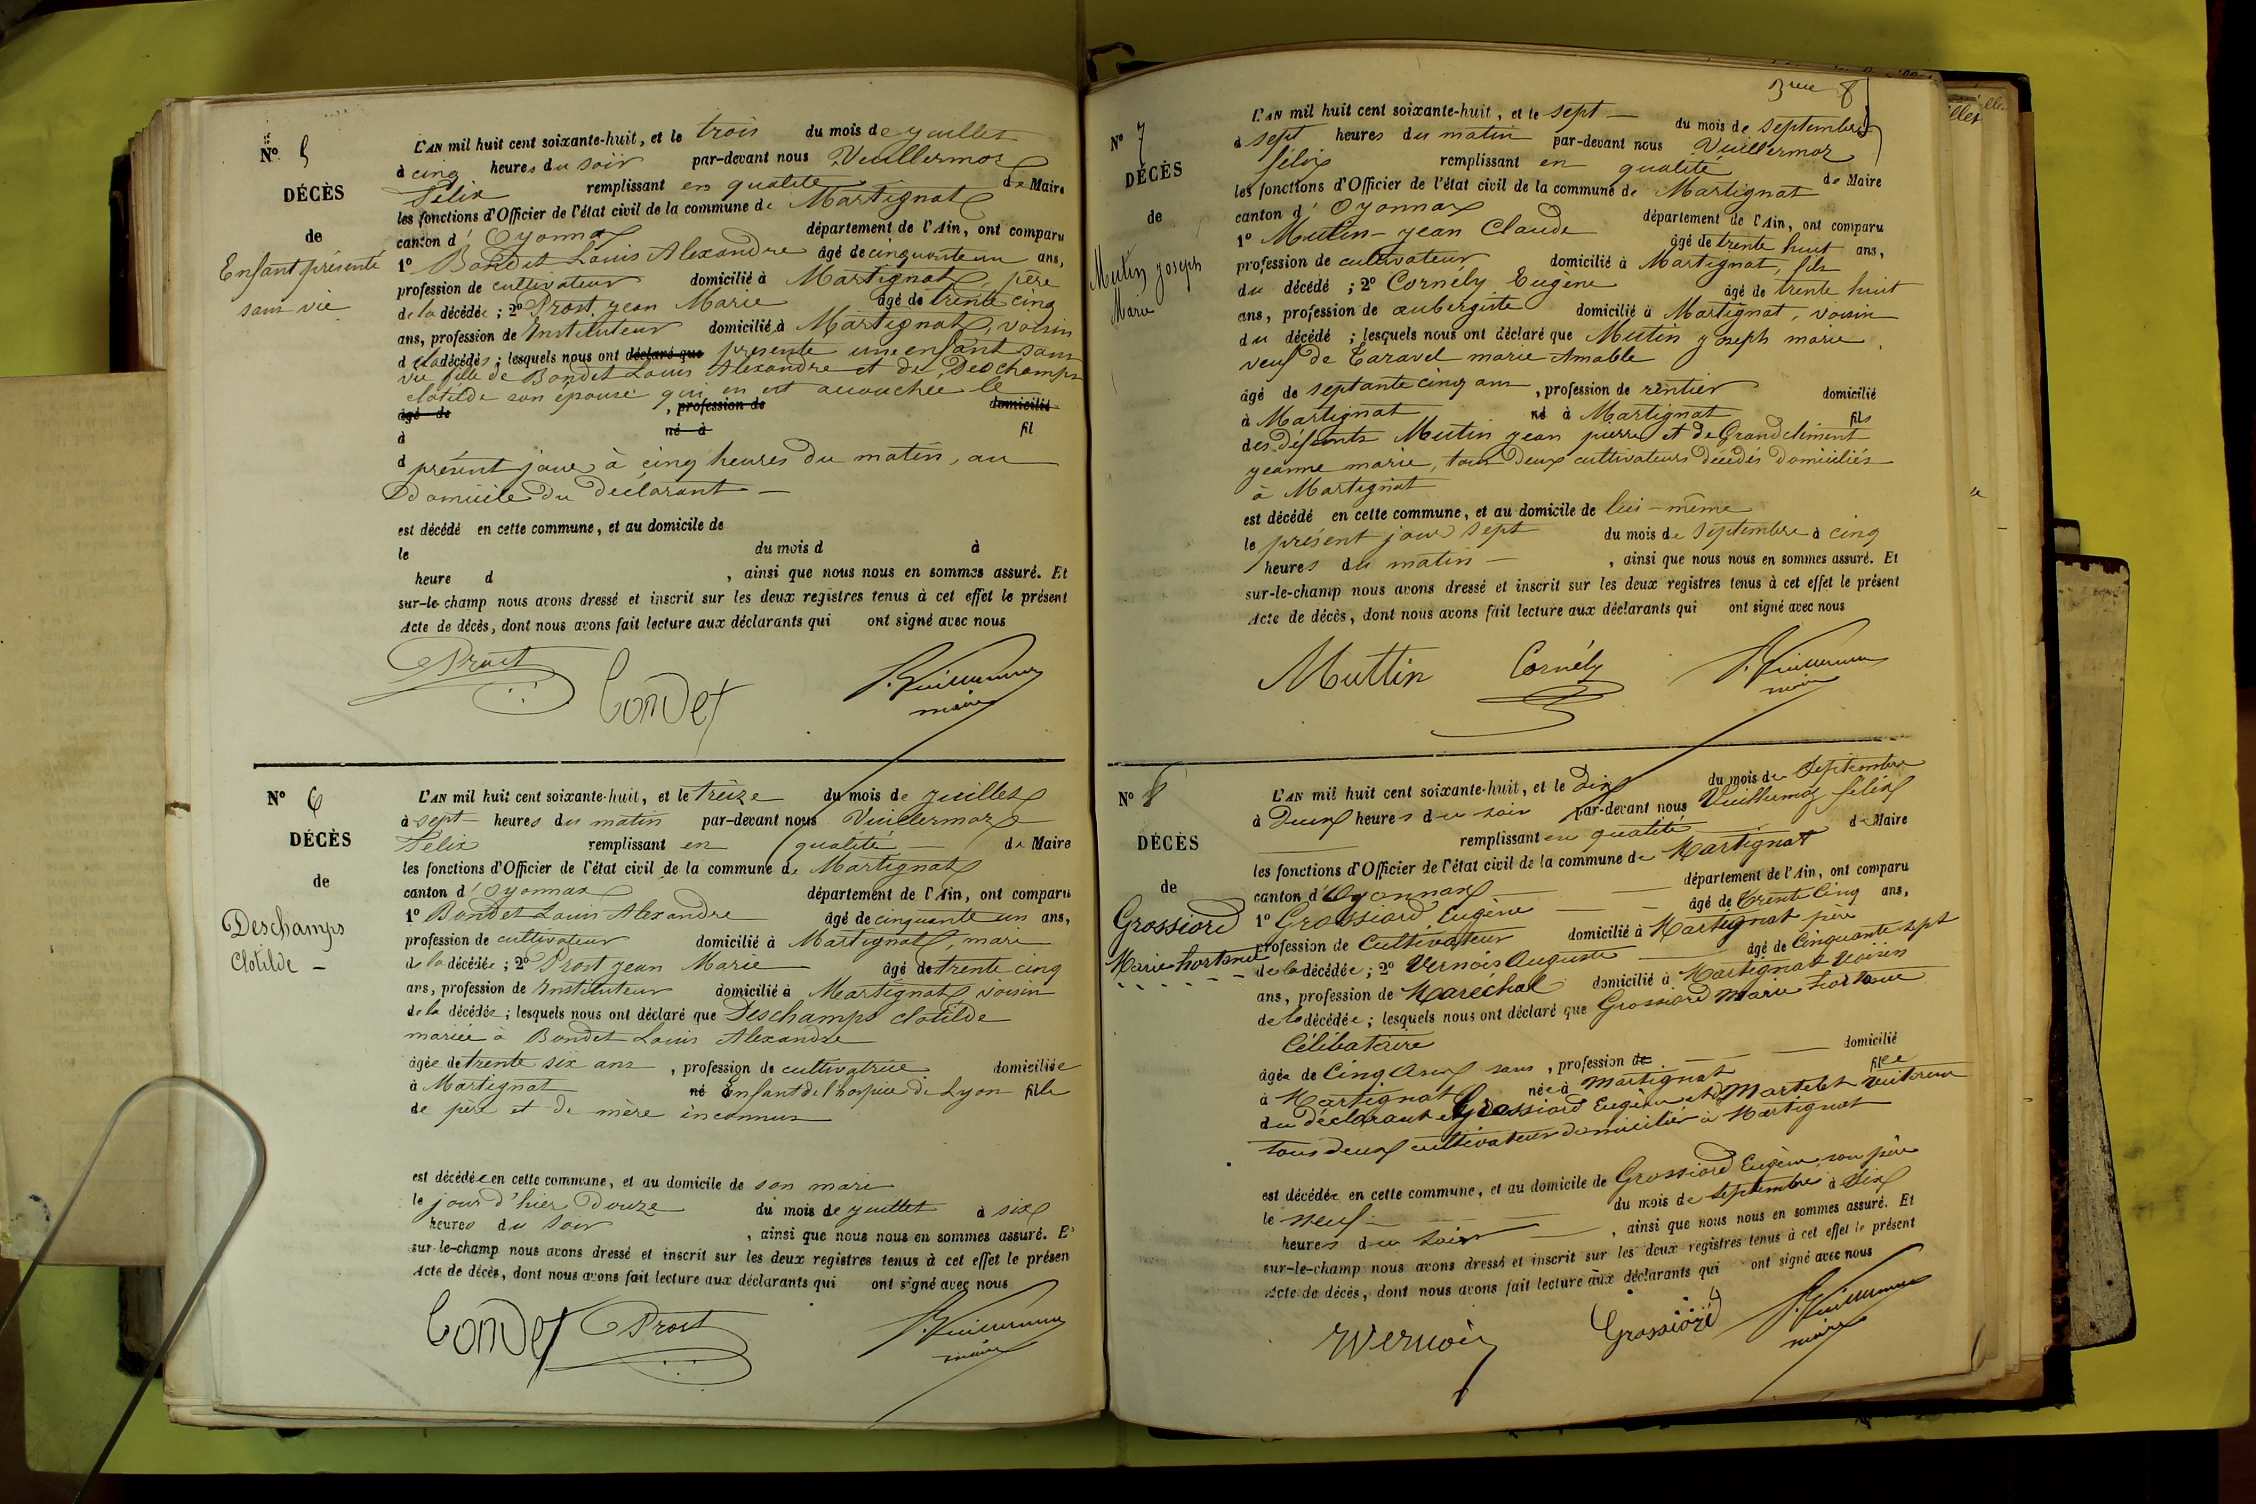 N° 5
DÉCÈS
de
Enfant présenté
sans vie
L'AN mil huit cent soixante-huit, et le trois du mois de juillet
à cinq heures du soir par-devant nous Vuillermoz
Félix remplissant en qualité de Maire
les fonctions d'Officier de l'état civil de la commune de Martignat
canton d' Oyonnax département de l'Ain, ont comparu
1° Bondet Louis Alexandre âgé de cinquante un ans,
profession de cultivateur domicilié à Martignat, père
de la décédée ; 2° Prost jean Marie âgé de trente cinq
ans, profession de Instituteur domicilié à Martignat, voisin
de la décédés ; lesquels nous ont déclaré que présenté une enfant sans
vie fille de Bondet Louis Alexandre et de Deschamps
clotilde son épouse qui en est accouchée le
âgé de , profession de domicilié
à né à fil
d présent jour à cinq heures du matin, au
domicile du déclarant —
est décédé en cette commune, et au domicile de
le du mois d à
heure d , ainsi que nous nous en sommes assuré. Et
sur-le-champ nous avons dressé et inscrit sur les deux registres tenus à cet effet le présent
Acte de décès, dont nous avons fait lecture aux déclarants qui ont signé avec nous
Prost Bondet F. Vuillermoz
maire
N° 6
DÉCÈS
de
Deschamps
Clotilde —
L'AN mil huit cent soixante-huit, et le treize du mois de juillet
à sept heures du matin par-devant nous Vuillermoz
Félix remplissant en qualité — de Maire
les fonctions d'Officier de l'état civil de la commune de Martignat
canton d' Oyonnax département de l'Ain, ont comparu
1° Bondet Louis Alexandre âgé de cinquante un ans,
profession de cultivateur domicilié à Martignat, mari
de la décédée ; 2° Prost jean Marie âgé de trente cinq
ans, profession de Instituteur domicilié à Martignat, voisin
de la décédée ; lesquels nous ont déclaré que Deschamps clotilde
mariée à Bondet Louis Alexandre
âgée de trente six ans , profession de cultivatrice domiciliée
à Martignat né Enfant de l'hospice de Lyon fille
de père et de mère inconnus
est décédée en cette commune, et au domicile de son mari
le jour d'hier Douze du mois de juillet à six
heures du soir , ainsi que nous nous en sommes assuré. E
sur-le-champ nous avons dressé et inscrit sur les deux registres tenus à cet effet le présen
Acte de décès, dont nous avons fait lecture aux déclarants qui ont signé avec nous
Bondet Prost F. Vuillermoz
maire
N° 7
DÉCÈS
de
Mutin Joseph
Marie
L'AN mil huit cent soixante-huit, et le sept — du mois de septembre
à sept heures du matin par-devant nous Vuillermoz
félix remplissant en qualité de Maire
les fonctions d'Officier de l'état civil de la commune de Martignat
canton d' Oyonnax département de l'Ain, ont comparu
1° Mutin jean Claude âgé de trente huit ans,
profession de cultivateur domicilié à Martignat, fils
du décédé ; 2° Cornély Eugène âgé de trente huit
ans, profession de aubergiste domicilié à Martignat, voisin
du décédé ; lesquels nous ont déclaré que Mutin joseph marie,
veuf de Taravel marie Amable
âgé de septante cinq ans , profession de rentier domicilié
à Martignat né à Martignat fils
des défunts Mutin jean pierre et de Grandclément
jeanne marie, tous deux cultivateurs décédés domiciliés
à Martignat
est décédé en cette commune, et au domicile de lui-même
le présent jour sept du mois de septembre à cinq
heures du matin — , ainsi que nous nous en sommes assuré. Et
sur-le-champ nous avons dressé et inscrit sur les deux registres tenus à cet effet le présent
Acte de décès, dont nous avons fait lecture aux déclarants qui ont signé avec nous
Muttin Cornély F. Vuillermoz
maire
N° 8
DÉCÈS
de
Grossiord
Marie hortense
L'AN mil huit cent soixante-huit, et le dix du mois de Septembre
à Deux heures du soir par-devant nous Vuillermoz félix
remplissant en qualité de Maire
les fonctions d'Officier de l'état civil de la commune de Martignat
canton d' Oyonnax département de l'Ain, ont comparu
1° Grossiord Eugène âgé de trente cinq ans,
profession de Cultivateur domicilié à Martignat père
de la décédée ; 2° Vernois Auguste âgé de Cinquante sept
ans, profession de Maréchal domicilié à Martignat voisin
de la décédée ; lesquels nous ont déclaré que Grossiord Marie hortense
Célibataire
âgée de Cinq Ans sans , profession de domicilié
à Martignat née à Martignat fille
du déclarant Grossiord Eugène et de Martelet
tous deux cultivateurs domiciliés à Martignat
est décédée en cette commune, et au domicile de Grossiord Eugène son père
le neuf du mois de septembre à Dix
heures du soir , ainsi que nous nous en sommes assuré. Et
sur-le-champ nous avons dressé et inscrit sur les deux registres tenus à cet effet le présent
Acte de décès, dont nous avons fait lecture aux déclarants qui ont signé avec nous
Vernois Grossiord F. Vuillermoz
maire